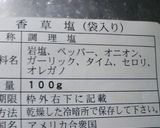 香草塩(袋入り)
称 調理塩
岩塩、ペッパー、オニオン、
料名 ガーリック、タイム、セロリ、
オレガノ
量 100g
期限 枠外右下に記載
方法 乾燥した冷暗所で保存して下さい。
国名 アメリカ合衆国